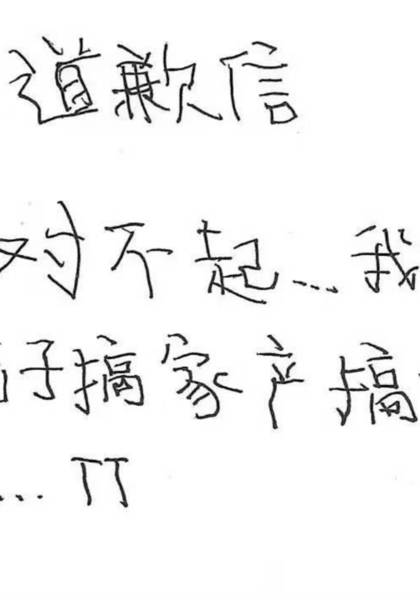 道歉信
对不起...我
子搞家产搞
... TT